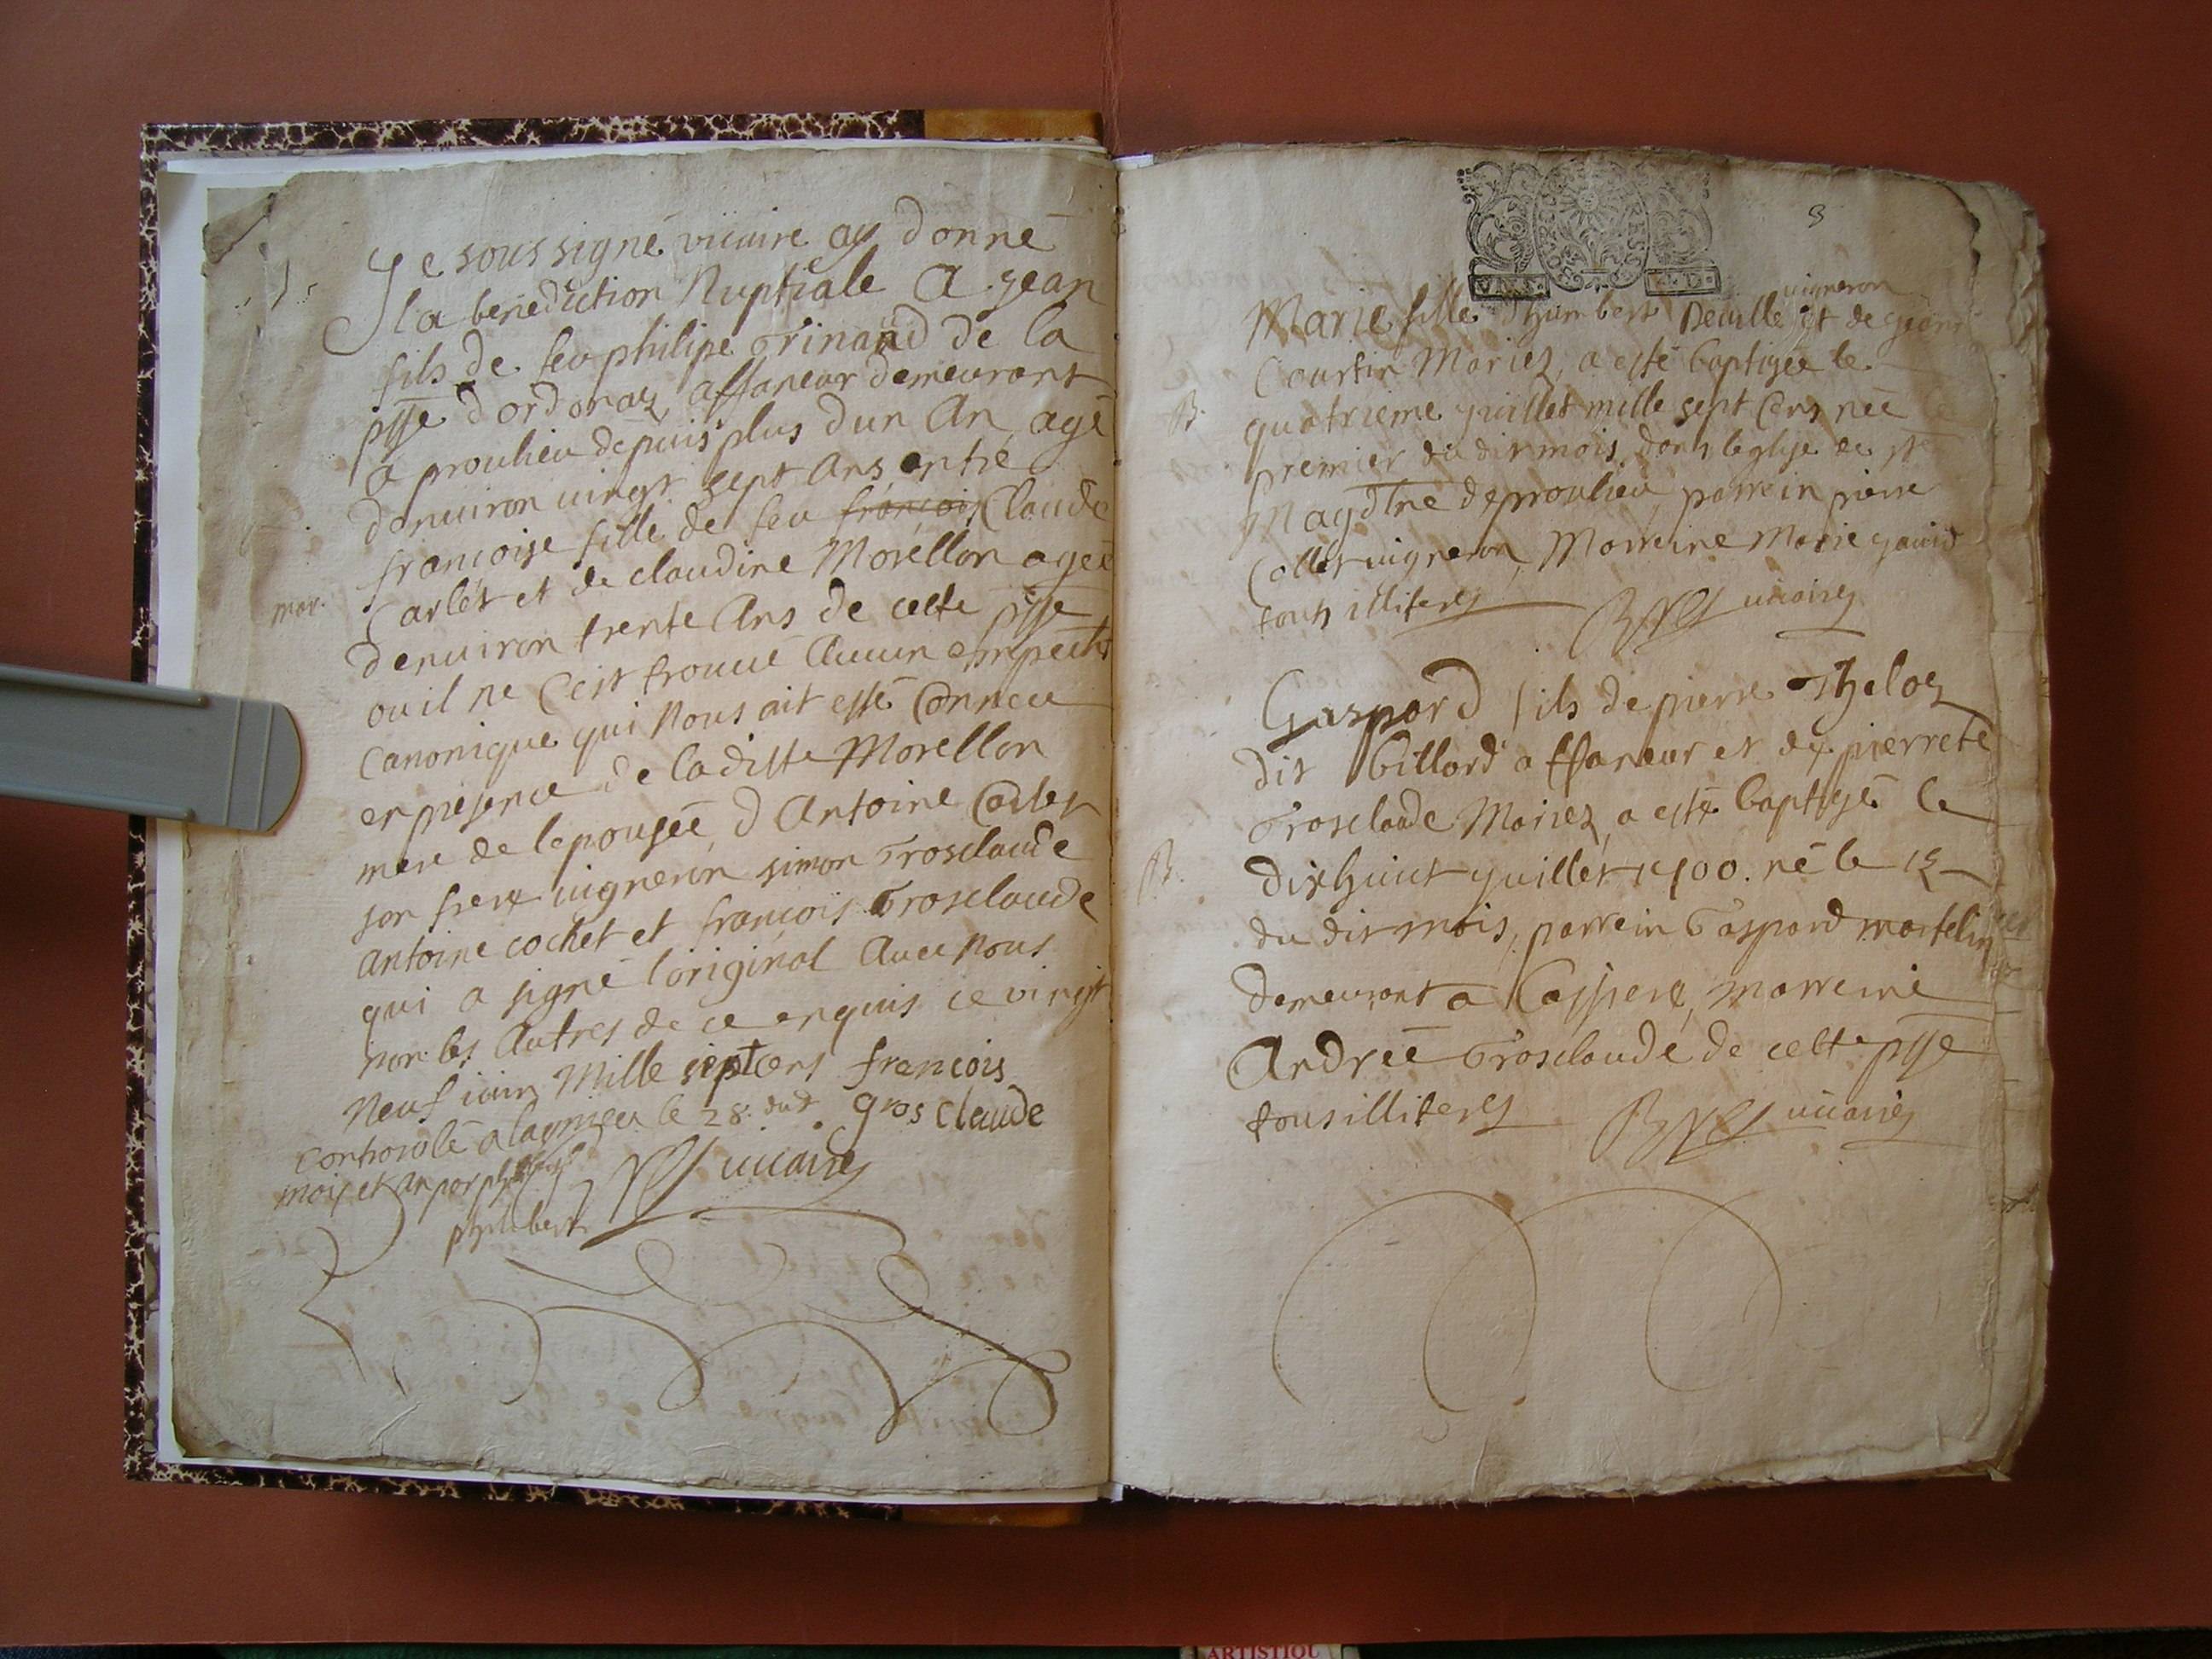 Je soussigné vicaire ay donné
la benediction Nuptiale A jean
fils de feu philipe Grinand de la
psse d'ordonaz affaneur demeurant
a proulieu depuis plus dun An, agé
denuiron uingt sept Ans, entre
francoise fille de feu francois Claude
Carlet et de claudine Morellon ageé
mar.
denuiron trente Ans de cette psse
ou il ne Cest trouué Aucun empecht
Canonique qui Nous ait esté Conneu
en presence de laditte Morellon
mere de lepouseé, d Antoine Carlet
son frere uigneron simon Grosclaude
antoine cochet et francois Grosclaude
qui a signé loriginal Auec Nous
non les Autres de ce enquis ce vingt
Neuf iuin Mille septcens francois
gros claude
Controolé a lagnieu le 28 dud
mois et an par
philibert
vicaire
3
uigneron
Marie fille dhumbert Deuille et de
Courtin Mariez, a esté baptizeé le
B.
quatrieme juillet mille sept Cens neé le
premier du dit mois, dans leglise de st
Magdlne de proulieu, parrein pierre
Collet uigneron, Marreine Marie
tous illiterez vicaire
Gaspard fils de pierre Theloz
dit billard affaneur et de pierrete
Grosclaude Mariez, a esté baptisé le
B.
dixhuict juillet 1700. né le 15
du dit mois, parrein Gaspard martelin
demeurant a Cassiere, marreine
Andreé Grosclaude de cette psse
tous illiterez vicaire
ARTISTIQU